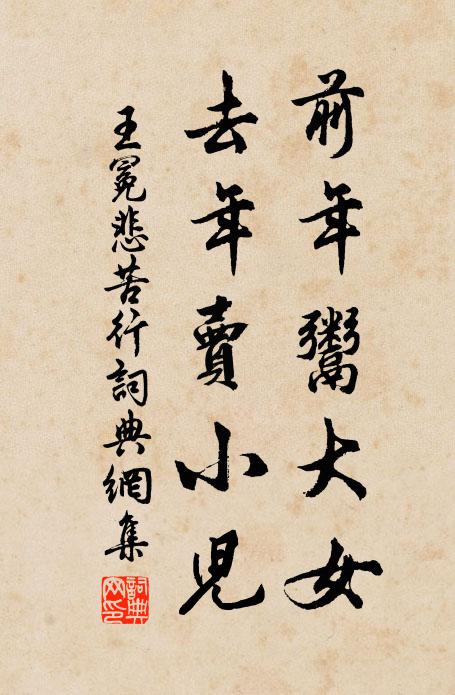 前年鬻大女
去年賣小兒
王冕悲苦行詞典網集
詞典網印